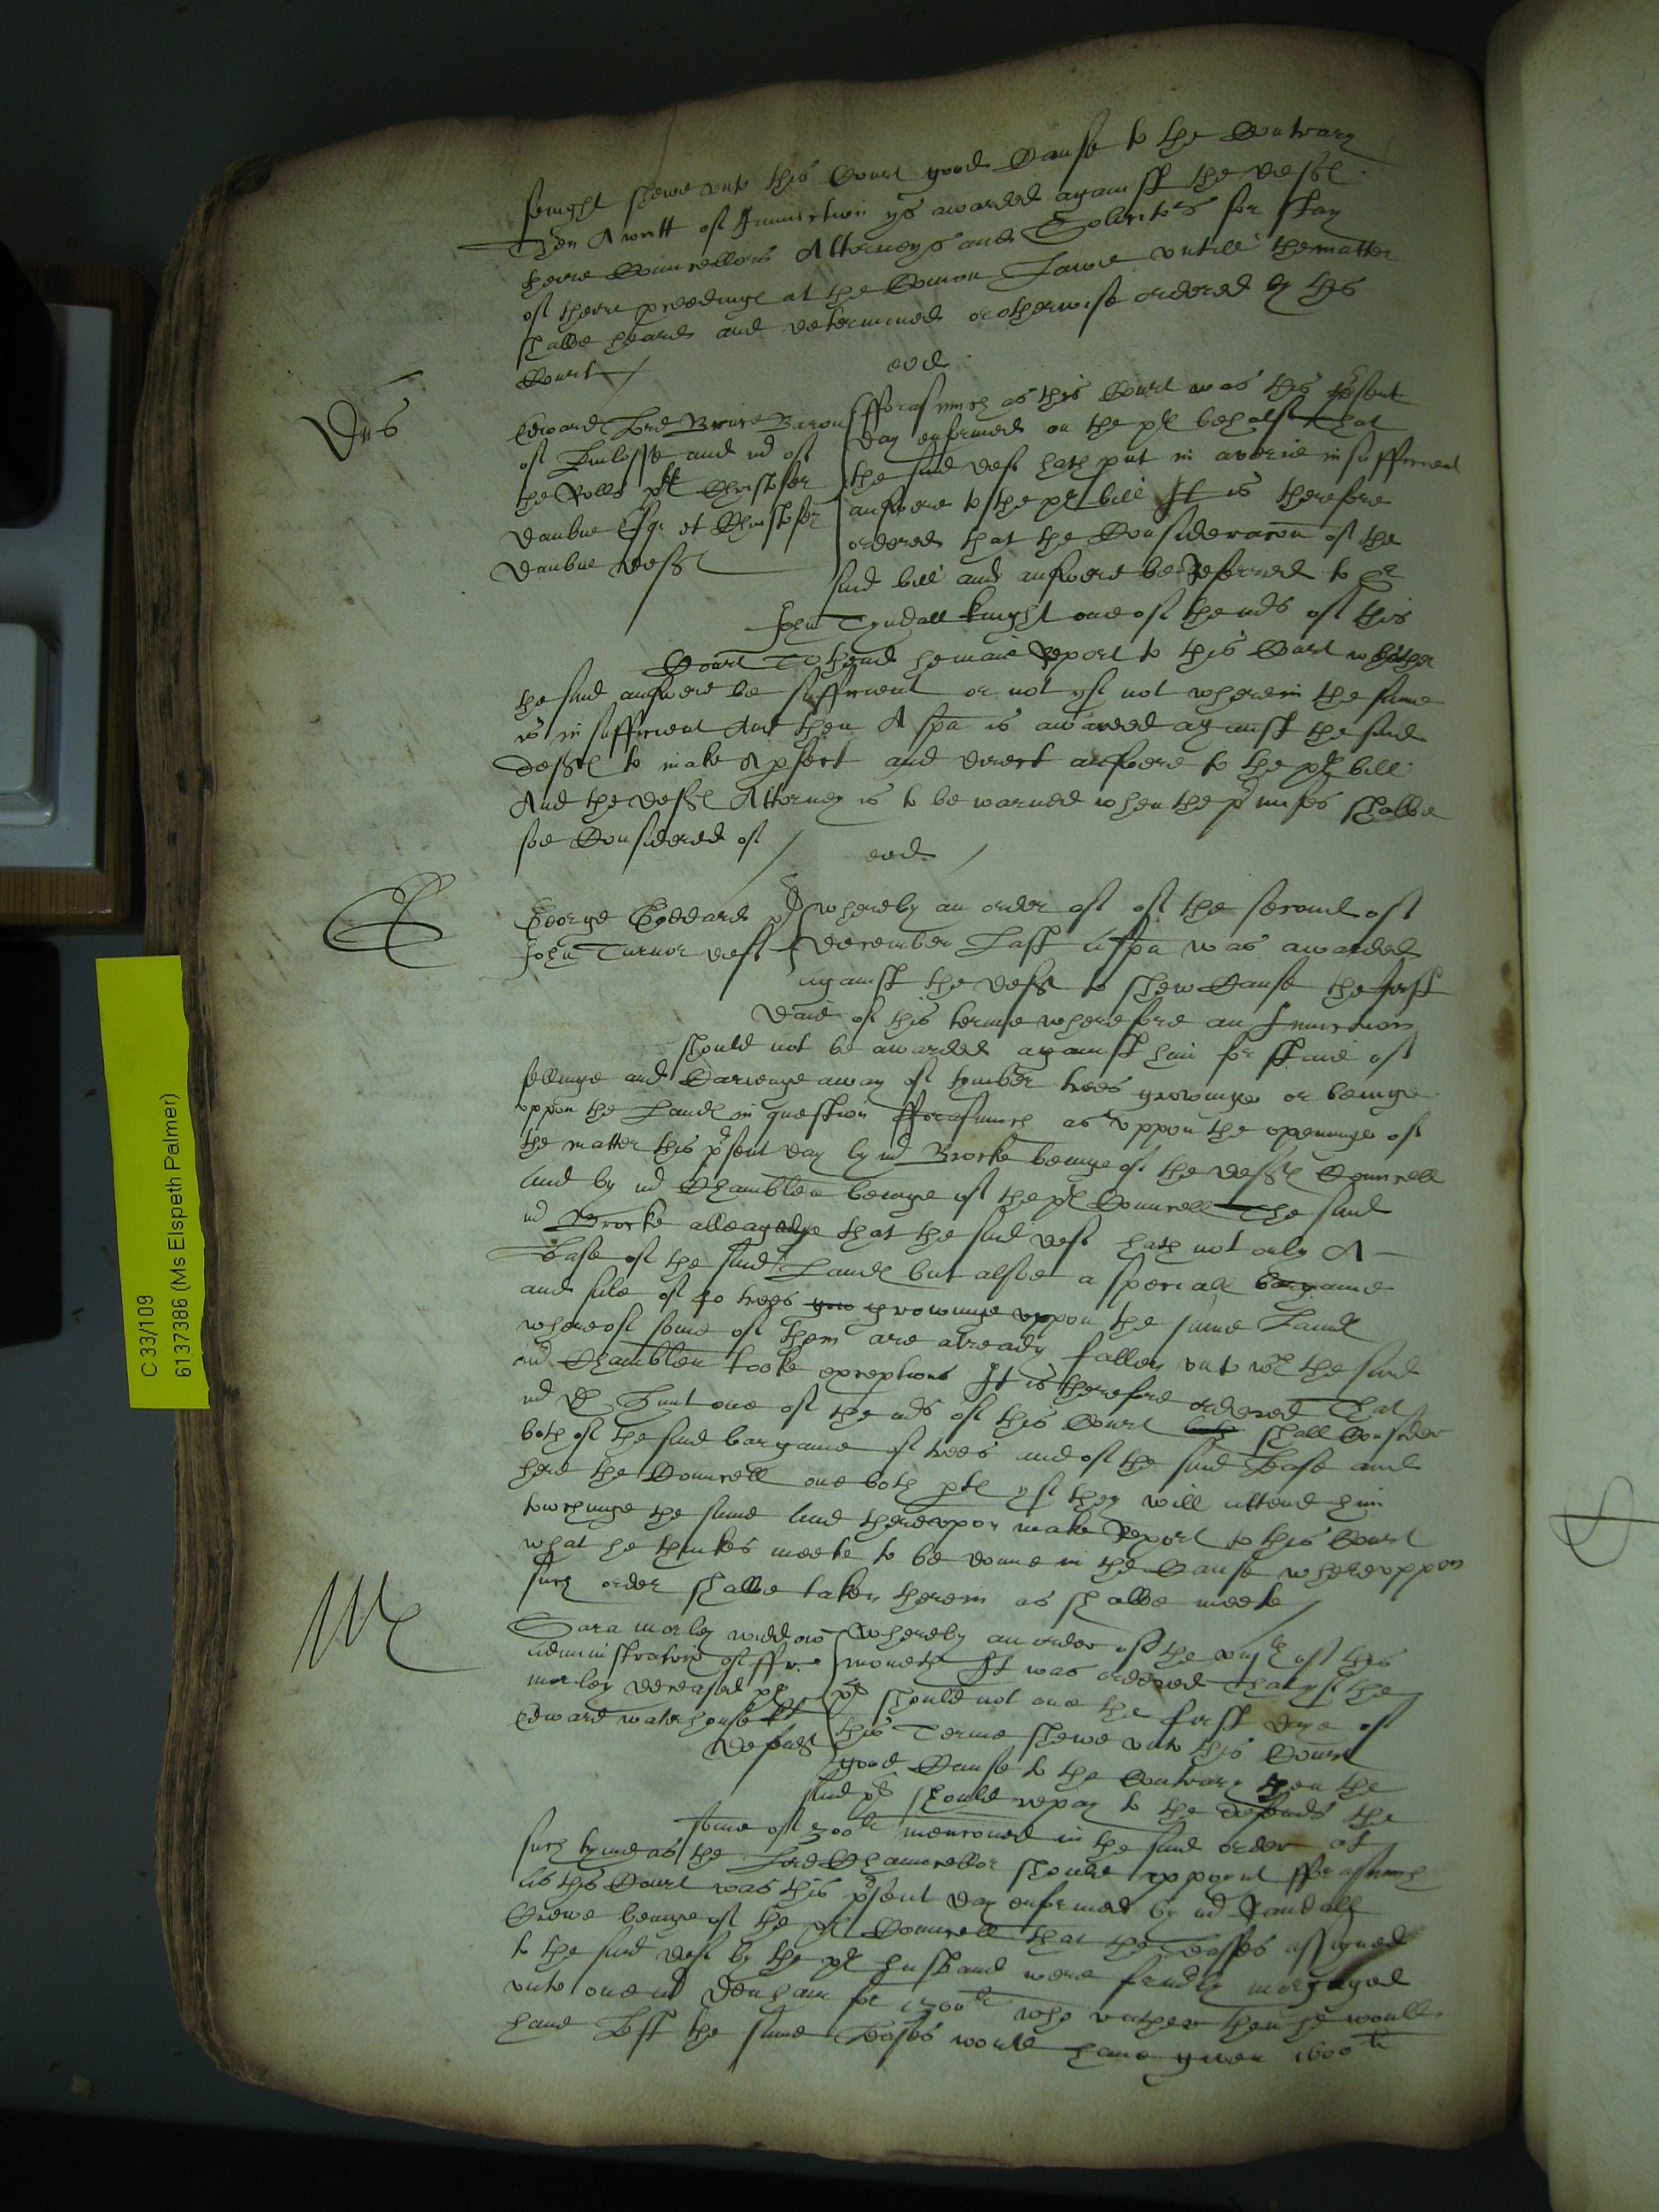 senight shewe unto this Court good Cause to the Contrary
Then A writt of Iniunction ys awarded against the defts
there Councellors Attorneys and Solicitors for stay
of there proceedinge at the Comon Lawe untill the matter
shalbe heard and determined or otherwise ordered by this
Court
eod
Edward Lord Bruce Baron
of Kinlosse and mr of
the Rolls plt Christofer
Danbue Esqr et Christofer
Danbue defts
fforasmuch as this Court was this psent
day enformed on the pl behalf that
the said deft hath put in a verie insufficient
answere to the pl bill It is therefore
ordered that the Consideracon of the
said bill and answere be Referred to Sr
John Tyndall knight one of the mrs of this
Court To thend he maie Report to this Court whether
the said answere be sufficient or not yf not wherein the same
is insufficient And then A spa is awarded against the said
Deftes to make A pfect and direct answere to the pl bill
And the defts Attorney is to be warned when the pmises shalbe
soe Considered of
eod
George Goddard pl
John Turnor deft
whereby an order of of the second of
december Last a spa was awarded
against the deft to shew Cause the first
daie of this terme wherefore an Iniunction
should not be awarded against him for staie of
fellinge and Carienge away of tymber trees growinge or beinge
uppon the Landes in question fforasmuch as uppon the openinge of
the matter this psent day by mr Brocke beinge of the defts Councell
And by mr Chamblen beinge of the pl Councell The said
mr Brocke alleaged that the said deft hath not only A
Lease of the said Landes but alsoe a speciall bargaine
and sale of 40 trees growinge uppon the same Landes
whereof some of them are already fallen unto wch the said
mr Chamblen tooke exceptions It is therefore ordered That
mr Hunt one of the mrs of this Court shall Consider
both of the said bargaine of trees and of the said Lease and
here the Councell one both pts yf they will attend him
towchinge the same And thereupon make Report to this Court
what he thinkes meete to be donne in the Cause whereuppon
such order shalbe taken therein as shalbe meete
Sara morley widdow
administratrix of
morley deceased pl
Edward waterhouse
defendt
whereby an order of the of this
moneth It was ordered That yf the
pl should not one the first daye of
this Terme shewe unto this Court
good Cause to the Contrary then the
said pl should repay to the defendt the
some of 300li mencioned in the said order at
such tyme as the Lord Chauncellor should appoynt fforasmuch
as this Court was this psent day enformed by mr Randall
Crewe beinge of the pl Councell that the Leasses assigned
to the said deft by the pl husband were formerly morgaged
unto one mr Denham for 1500li who rather then he would
have Lost the same Leases would have given 1600li
C 33/109
6137386 (Ms Elspeth Palmer)